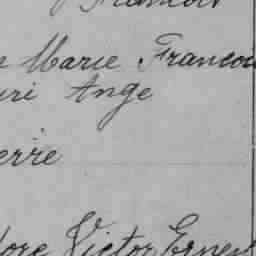 Francois
e Marie Francoi
uri Ange
erre
dore Victor Ernes